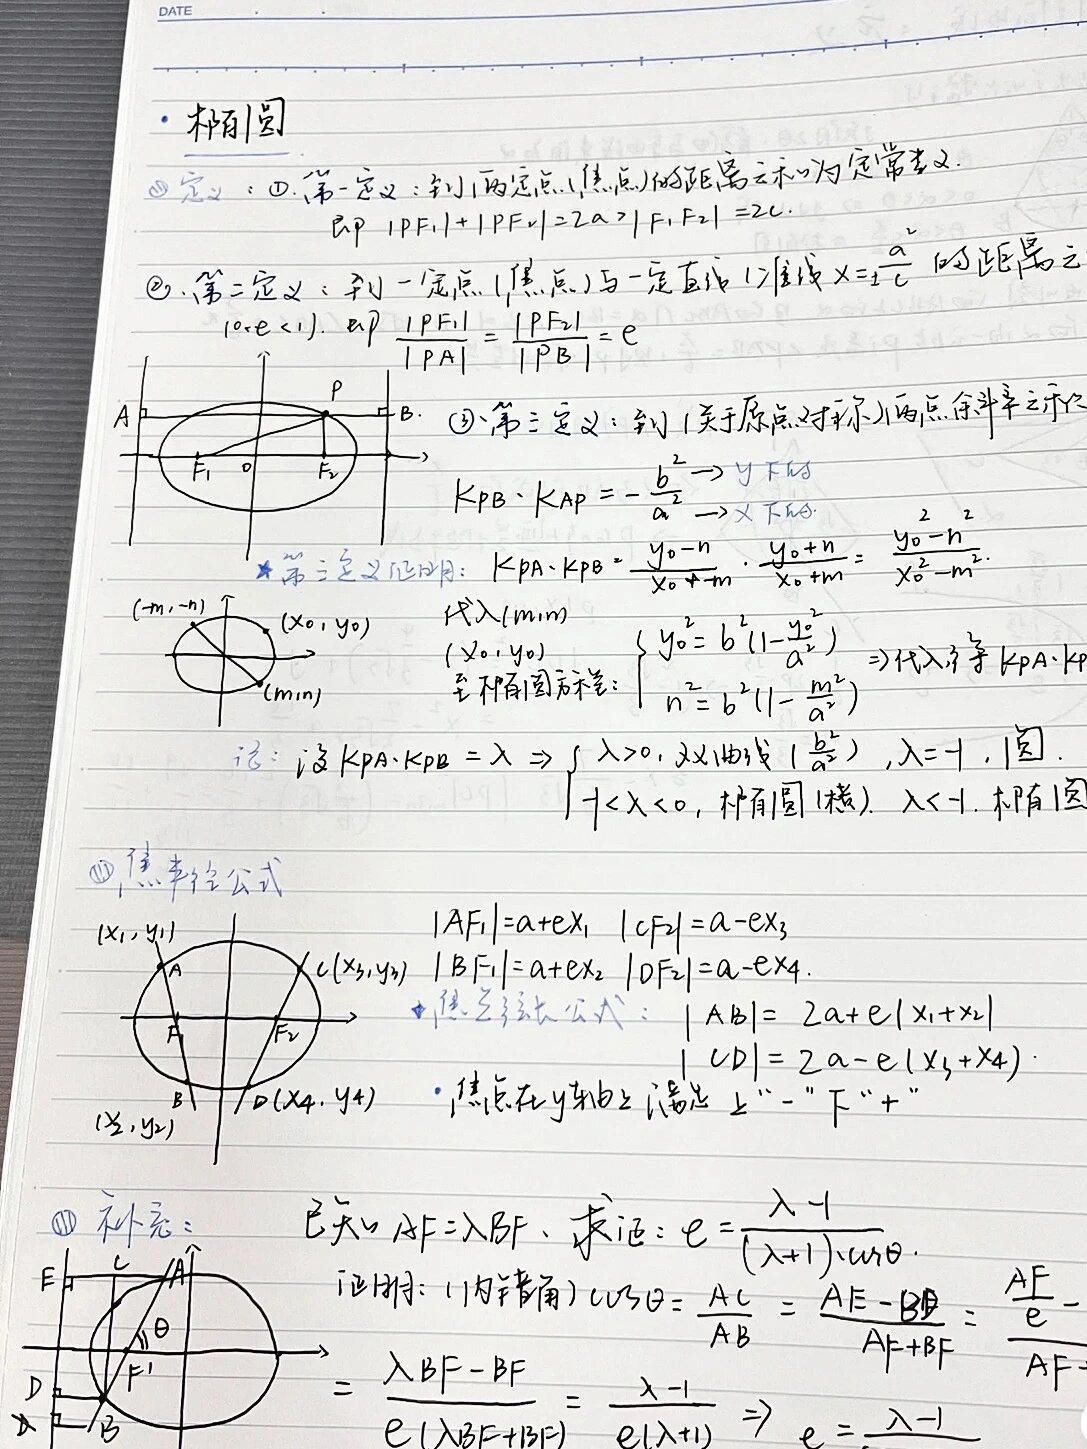 DATE
· 椭圆
(1) 定义：①. 第一定义：到两定点(焦点)的距离之和为定常数.
即 |PF₁|+|PF₂|=2a>|F₁F₂|=2c.
②. 第二定义：到一定点(焦点)与一定直线(准线 x=±a²/c 的距离之
(0<e<1). 即 |PF₁|/|PA| = |PF₂|/|PB| = e
A P B. F₁ O F₂
③. 第三定义：到(关于原点对称)两点斜率之
KPB · KAP = -b²/a² → y下的
→ x下的.
★第三定义证明: KPA·KPB = (y₀-n)/(x₀-m) · (y₀+n)/(x₀+m) = (y₀²-n²)/(x₀²-m²).
(-m,-n) (x₀,y₀) (m,n)
代入(m,n)
(x₀,y₀)
至椭圆方程:
{ y₀²=b²(1-y₀²/a²)
n²=b²(1-m²/a²)
⇒代入得 KPA·KP
记: 设 KPA·KPB = λ ⇒ { λ>0, 双曲线 (b²/a²), λ=-1, 圆.
-1<λ<0, 椭圆(横). λ<-1. 椭圆
(11) 焦半径公式
(x₁,y₁) A C(x₃,y₃) F₁ F₂ B D(x₄,y₄) (x₂,y₂)
|AF₁|=a+ex₁ |CF₂|=a-ex₃
|BF₁|=a+ex₂ |DF₂|=a-ex₄.
★焦点弦长公式: |AB|= 2a+e(x₁+x₂)
|CD|=2a-e(x₃+x₄).
· 焦点在y轴上满足 上"-"下"+"
(111) 补充:
已知 AF=λBF、求证: e=(λ-1)/((λ+1)·cosθ.
E C A θ F' D B
证明: (内错角) cosθ= AC/AB = (AE-BD)/(AF+BF) = (AF/e -
AF
= (λBF-BF)/(e(λBF+BF)) = (λ-1)/(e(λ+1)) ⇒ e = λ-1